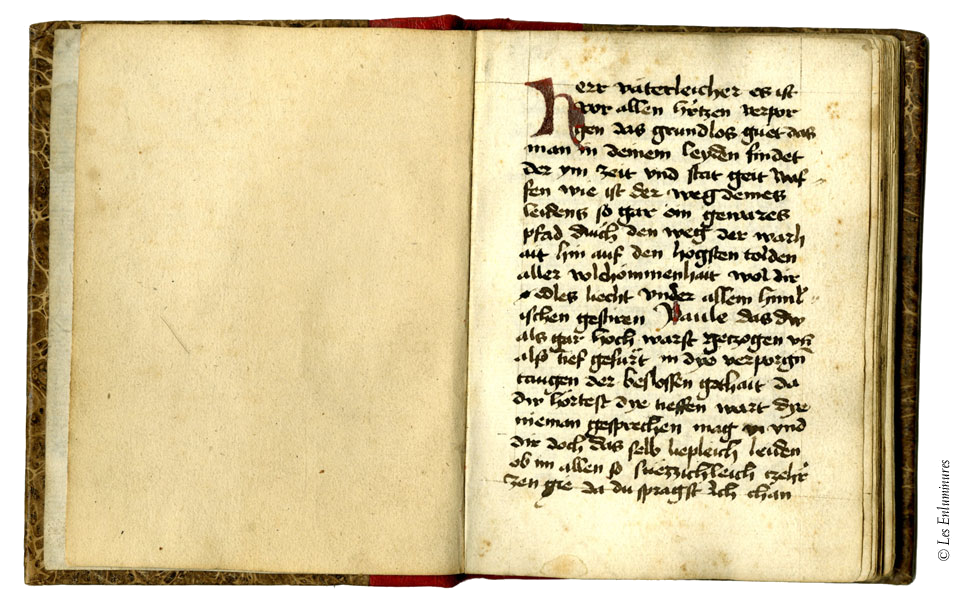 herr väterleicher es ist
vor allen hertzen verpor
gen das grundlos guet das
man in deinem leyden findet
der ym zeit vnd stat geit Waf
fen wie ist der weg deines
leidens so gar ein gewares
pfad durch den weg der warh
ait hin auf den hogsten tolden
aller volchomenhait wol dir
edles liecht vnder allem himl
ischen gestiren Paule das dw
als gar hoch warst getzogen vn̄
also tief gefürt in dye verporgn̄
taugen der beslossen gothait da
dw hörtest dye tieffen wart dye
nieman gesprechen mag vnd
dir doch das selb liepleich leiden
ob im allen so suezzichleich
da du spragst Ich chan
© Les Enluminures